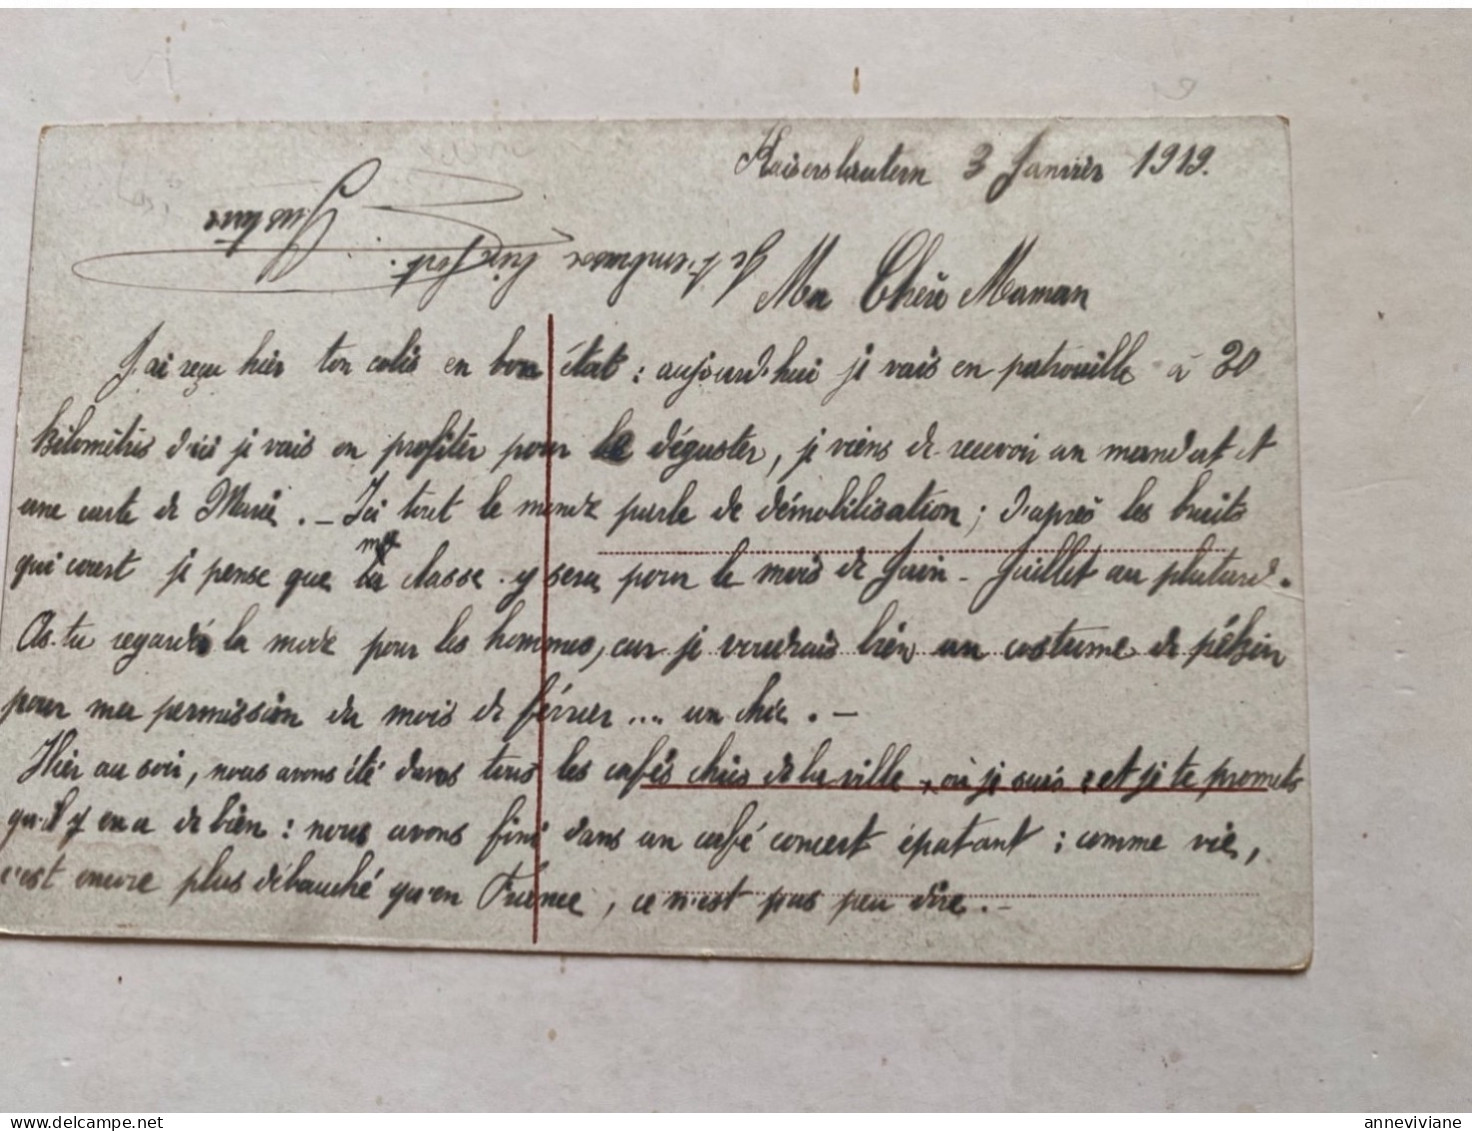 Kaiserslautern 3 Janvier 1919.
Ma Chère Maman
J'ai reçu hier ton colis en bon état : aujourd'hui je vais en patrouille à 20
kilomètres d'ici je vais en profiter pour le déguster, je viens de recevoir un mandat et
une carte de Marie. - Ici tout le monde parle de démobilisation ; d'après les bruits
qui court je pense que ma classe y sera pour le mois de Juin - Juillet au plutard.
As-tu regardé la mode pour les hommes, car je voudrais bien un costume de pékin
pour ma permission du mois de février .... un chic. -
Hier au soir, nous avons été dans tous les cafés chics de la ville, où je suis, et je te promets
qu'il y en a de bien : nous avons fini dans un café concert épatant ; comme vie,
c'est encore plus débauché qu'en France, ce n'est pas peu dire. -
Je t'embrasse fort.
anneviviane